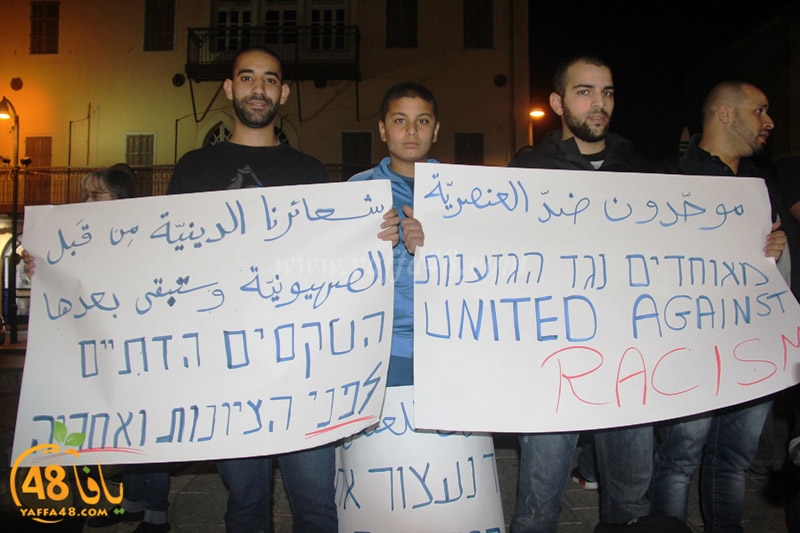 شعائرنا الدينيّة مِن قَبل
الصهيونيّة وستبقى بعدها
הטקסים הדתיים
לפני הציונות ואחריה
موحّدون ضدّ العنصريّة
מאוחדים נגד הגזענות
UNITED AGAINST
RACISM
נעצור את
48 يافا
YAFFA48.COM